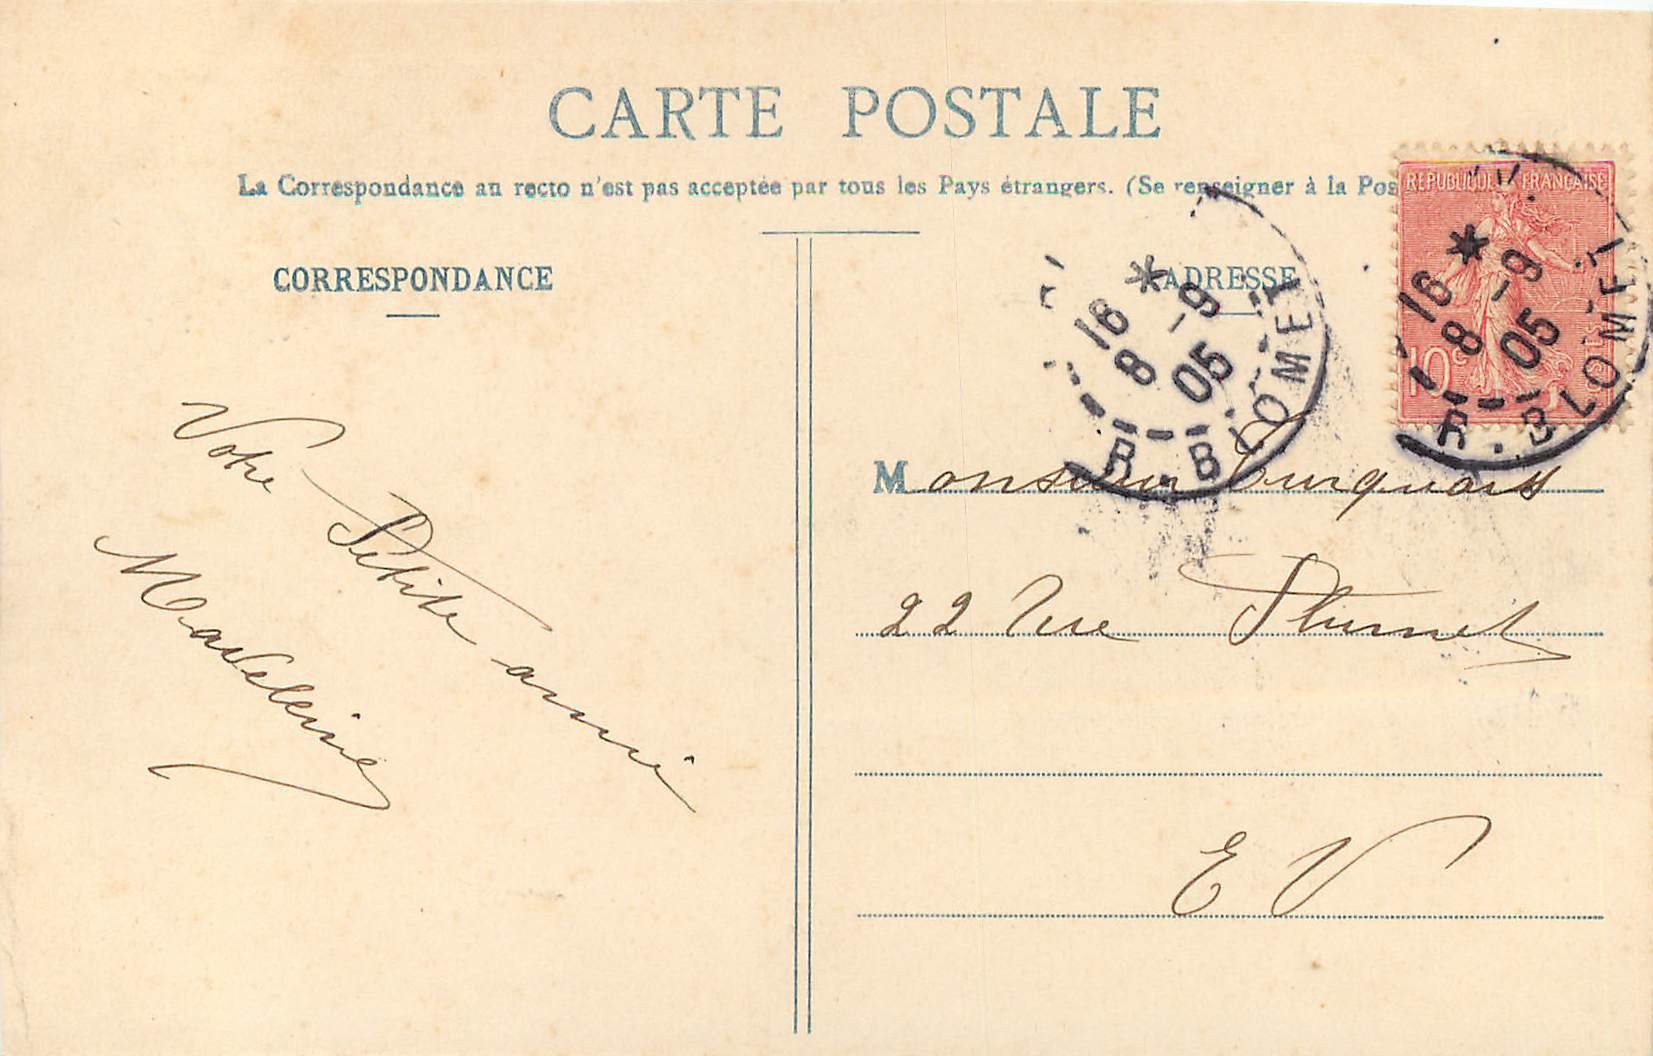 CARTE POSTALE
La Correspondance au recto n'est pas acceptée par tous les Pays étrangers. (Se renseigner à la Pos
CORRESPONDANCE
ADRESSE
REPUBLIQUE FRANÇAISE
10c
16 * 9
8 - 05
R. BLOMET
16 * 9
8 - 05
R. BLOMET
Votre Petite amie
Madeleine
Monsieur Turquois
22 Rue Plumet
E V